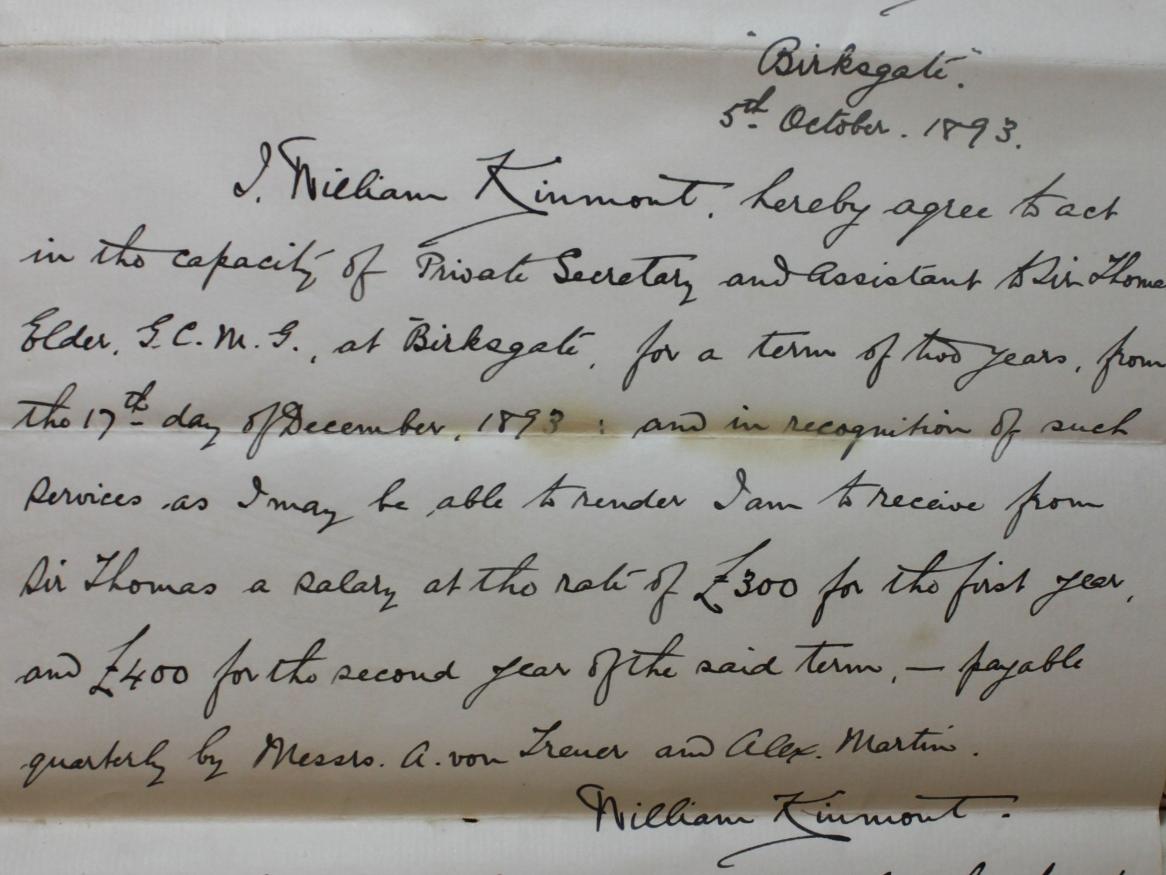 "Birksgate".
5th October. 1893.
I, William Kinmont, hereby agree to act
in the capacity of Private Secretary and Assistant to Sir Thomas
Elder, G.C.M.G., at Birksgate, for a term of two years, from
the 17th day of December, 1893 : and in recognition of such
services as I may be able to render I am to receive from
Sir Thomas a salary at the rate of £300 for the first year,
and £400 for the second year of the said term, — payable
quarterly by Messrs. A. von Treuer and Alex. Martin.
William Kinmont.